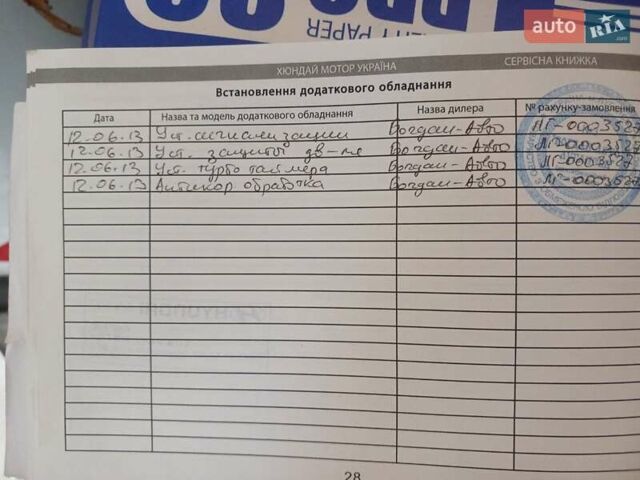 PRO
NT PAPER
auto RIA .com
ХЮНДАЙ МОТОР УКРАЇНА СЕРВІСНА КНИЖКА
Встановлення додаткового обладнання
Дата Назва та модель додаткового обладнання Назва дилера № рахунку-замовлення
12.06.13 Уст. сигнализации Богдан-Авто ЛГ-0003527
12.06.13 Уст. защиты дв-ля Богдан-Авто ЛГ-0003527
12.06.13 Уст. турбо таймера Богдан-Авто ЛГ-0003527
12.06.13 Антикор обработка Богдан-Авто ЛГ-0003527
28